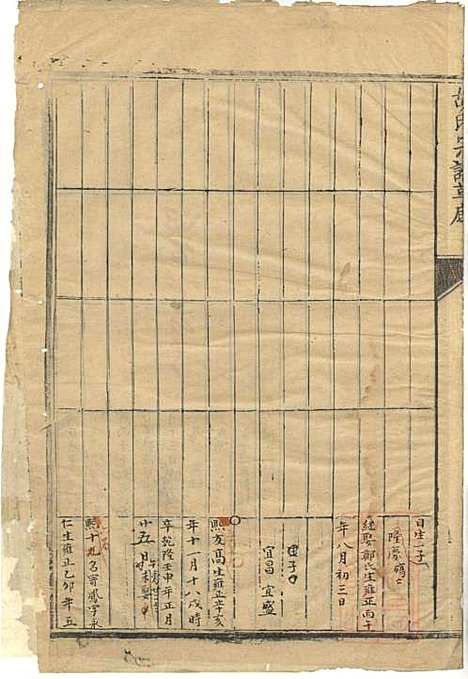 胡氏宗譜草底
日生一子
隆慶
継娶鄭氏生雍正丙午
年八月初三日
宜昌 宜盛
熙友高生雍正辛亥
年十一月十八戌時
卒乾隆壬申年正月
十五
熙十九名宵鳳字永
仁生雍正乙卯年五